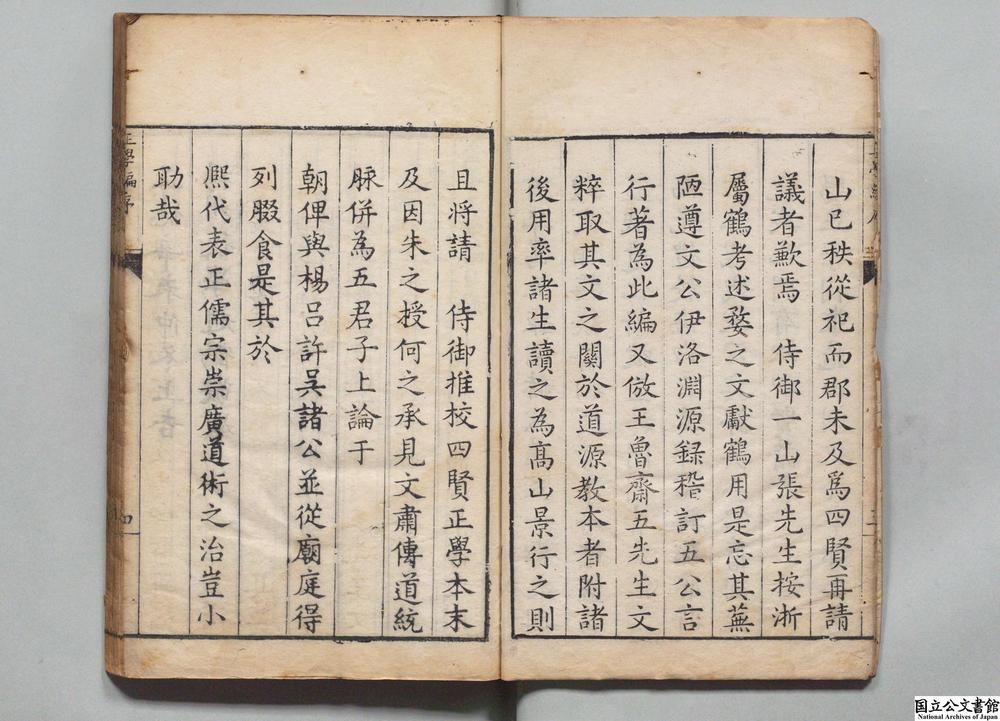 山已秩從祀而郡未及爲四賢再請
議者歉焉　侍御一山張先生按浙
屬鶴考述婺之文獻鶴用是忘其蕪
陋遵文公伊洛淵源錄稽訂五公言
行著為此編又倣王魯齋五先生文
粹取其文之關於道源教本者附諸
後用率諸生讀之為髙山景行之則
且将請　侍御推校四賢正學本末
及因朱之授何之承見文肅傳道統
脉併為五君子上論于
朝俾與楊呂許吳諸公並從廟庭得
列腏食是其於
熈代表正儒宗崇廣道術之治豈小
助哉
正學編序
四
国立公文書館
National Archives of Japan